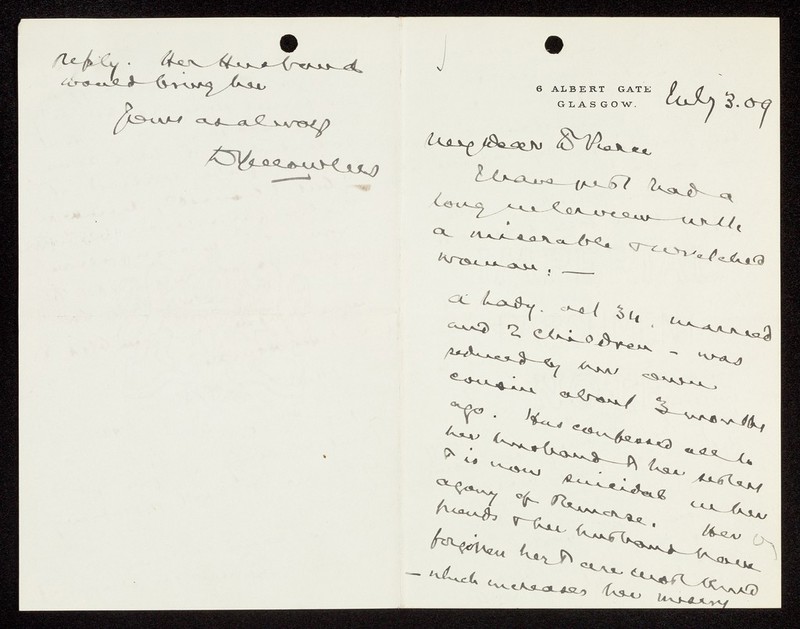 reply. Her Husband
would bring her
Yours as always
D Yellowlees
6 ALBERT GATE
GLASGOW.
July 3. 09
My dear Dr Pierce
I have just had a
long interview with
a miserable & wretched
woman. —
A Lady. aet 34. married
and 2 children - was
seduced by her own
cousin about 3 months
ago. Has confessed all to
her husband & her sisters
& is now suicidal in her
agony of Remorse. Her
friends & her husband have
forgiven her & are most kind
— which increases her misery